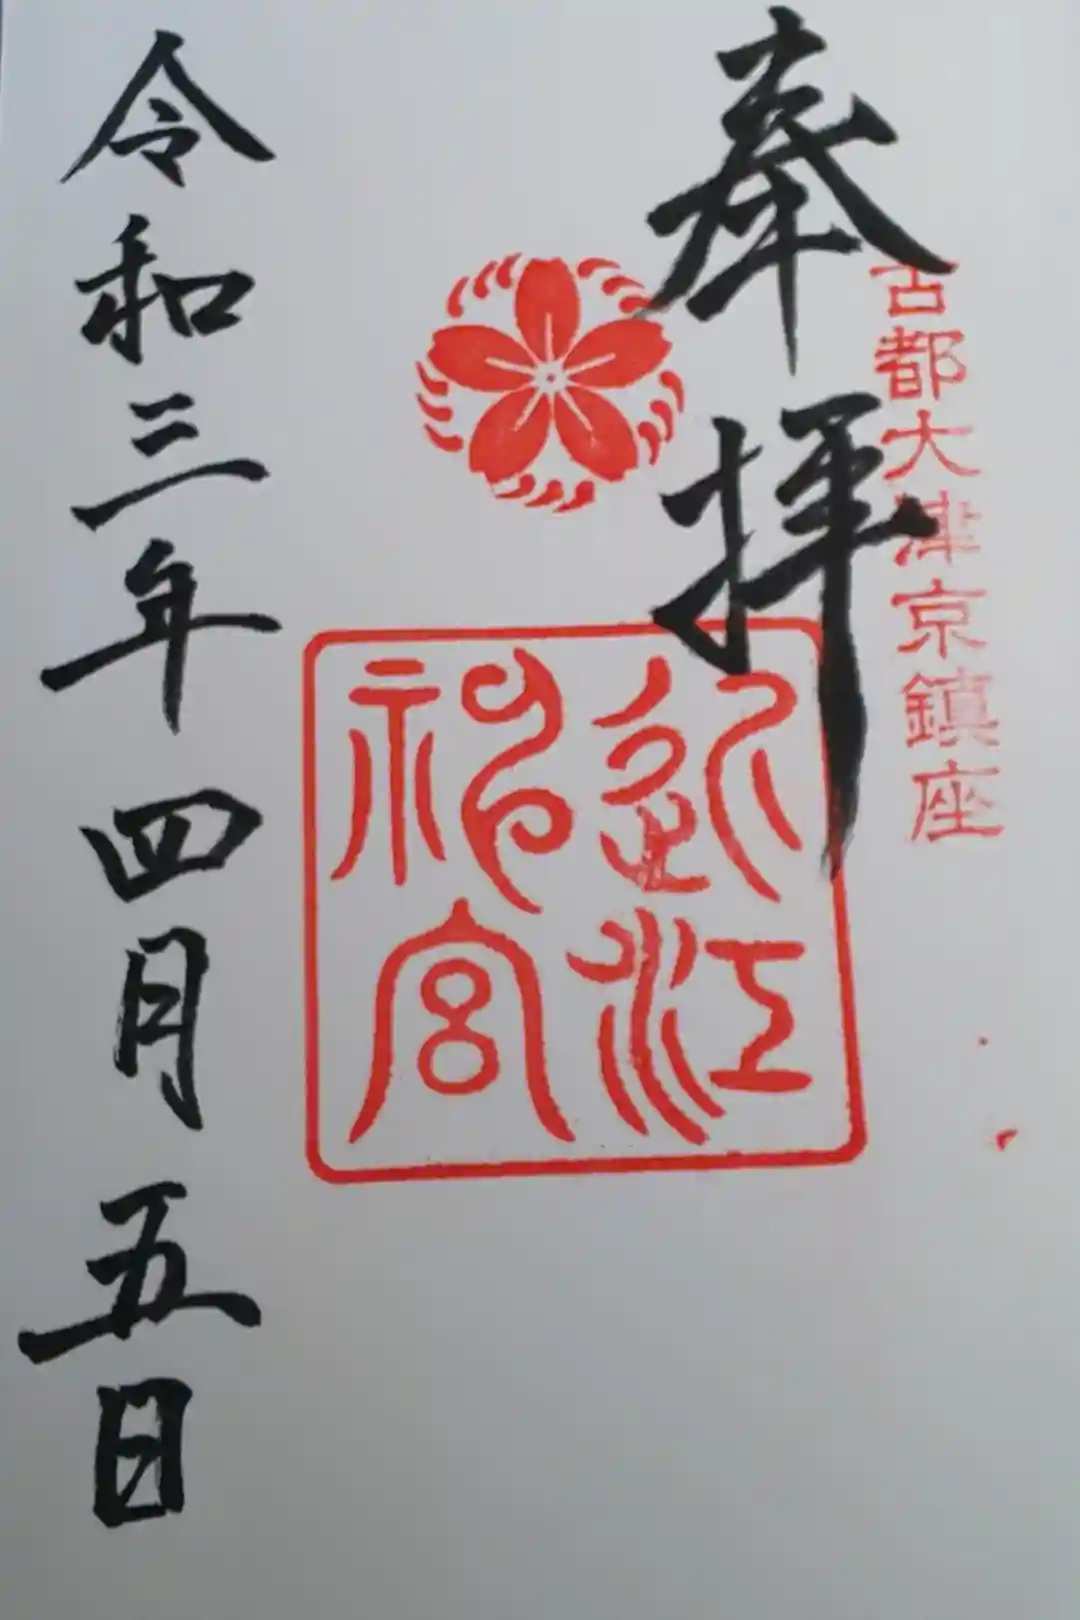 古都大津京鎮座
奉拝
近江神宮
令和三年四月五日